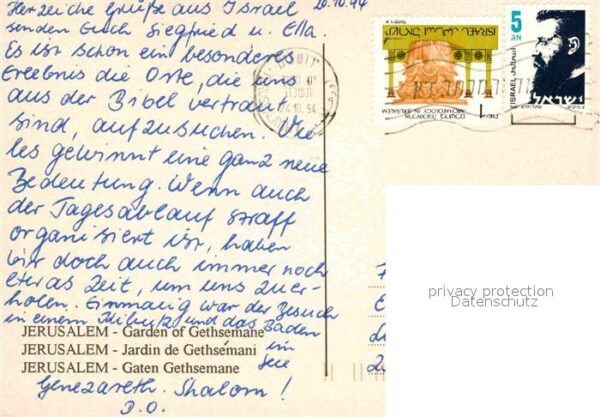 Herzliche Grüße aus Israel
20.10.94
senden Euch Siegfried u. Ella.
Es ist schon ein besonderes
Erlebnis die Orte, die uns
aus der Bibel vertraut
sind, aufzusuchen. Vie
les gewinnt eine ganz neue
Bedeutung. Wenn auch
der Tagesablauf straff
organisiert ist, haben
wir doch auch immer noch
etwas Zeit, um uns zu er-
holen. Einmalig war der Besuch
in einem Kibuz und das Baden
im
See
Genezareth. Shalom!
D.O.
JERUSALEM - Garden of Gethsemane
JERUSALEM - Jardin de Gethsémani
JERUSALEM - Gaten Gethsemane
ISRAEL
ARCHAEOLOGY IN JERUSALEM
5
ISRAEL
ישראל
privacy protection
Datenschutz